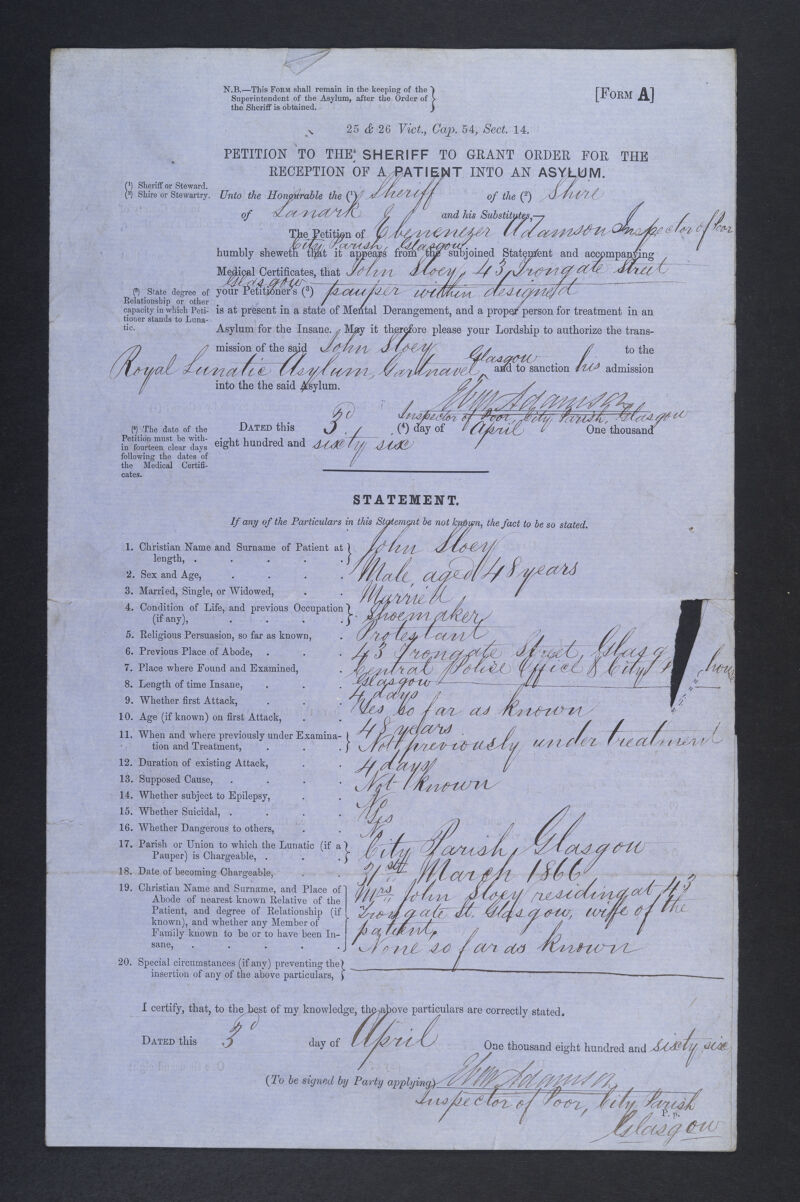 N.B.—This Form shall remain in the keeping of the
Superintendent of the Asylum, after the Order of
the Sheriff is obtained.
[Form A]
25 & 26 Vict., Cap. 54, Sect. 14.
PETITION TO THE SHERIFF TO GRANT ORDER FOR THE
RECEPTION OF A PATIENT INTO AN ASYLUM.
(¹) Sheriff or Steward.
(²) Shire or Stewartry.
Unto the Honourable the (¹) Sheriff of the (²) Shire
of Lanark and his Substitutes,
The Petition of Ebenenezer Adamson Inspector of Poor
City Parish, Glasgow
humbly sheweth that it appears from the subjoined Statement and accompanying
Medical Certificates, that John Sloey, 43 Trongate Street
Glasgow
(³) State degree of
Relationship or other
capacity in which Peti-
tioner stands to Luna-
tic.
your Petitioner's (³) pauper within designed
is at present in a state of Mental Derangement, and a proper person for treatment in an
Asylum for the Insane. May it therefore please your Lordship to authorize the trans-
mission of the said John Sloey to the
Royal Lunatic Asylum, Gartnavel Glasgow and to sanction his admission
into the the said Asylum.
Eben Adamson
Inspector of Poor, City Parish, Glasgow
(⁴) The date of the
Petition must be with-
in fourteen clear days
following the dates of
the Medical Certifi-
cates.
Dated this 3d (⁴) day of April One thousand
eight hundred and sixty six
STATEMENT.
If any of the Particulars in this Statement be not known, the fact to be so stated.
1. Christian Name and Surname of Patient at
length, . John Sloey
2. Sex and Age, Male, aged 48 years
3. Married, Single, or Widowed, Married
4. Condition of Life, and previous Occupation
(if any), Shoemaker
5. Religious Persuasion, so far as known, Protestant
6. Previous Place of Abode, 43 Trongate Street, Glasg
7. Place where Found and Examined, Central Police Office & City house
Glasgow
8. Length of time Insane, 4 days
9. Whether first Attack, Yes, so far as known
10. Age (if known) on first Attack, 48 years
11. When and where previously under Examina-
tion and Treatment, Not previously under treatment
12. Duration of existing Attack, 4 days
13. Supposed Cause, Not known
14. Whether subject to Epilepsy, No
15. Whether Suicidal, Yes
16. Whether Dangerous to others, No
17. Parish or Union to which the Lunatic (if a
Pauper) is Chargeable, City Parish, Glasgow
18. Date of becoming Chargeable, 31st March 1866
19. Christian Name and Surname, and Place of
Abode of nearest known Relative of the
Patient, and degree of Relationship (if
known), and whether any Member of
Family known to be or to have been In-
sane,
Mrs John Sloey residing at 43
Trongate St. Glasgow, wife of the
patient.
None so far as known
20. Special circumstances (if any) preventing the
insertion of any of the above particulars,
I certify, that, to the best of my knowledge, the above particulars are correctly stated.
Dated this 3d day of April One thousand eight hundred and sixty six
(To be signed by Party applying) Eben Adamson
Inspector of Poor, City Parish
P. p.
Glasgow